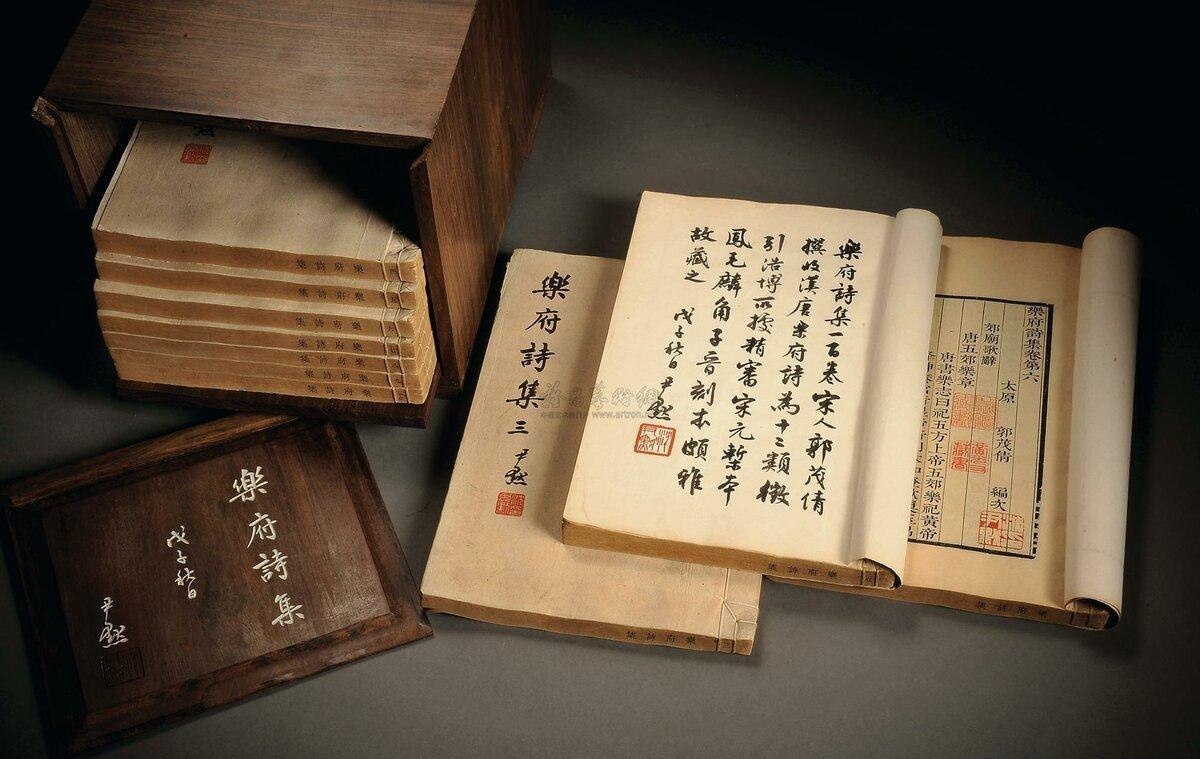 樂府詩集
樂府詩集
樂府詩集
樂府詩集
樂府詩集
樂府詩集
樂府詩集
戊子秋日
尹默
樂府詩集三
尹默
樂府詩集
樂府詩集一百卷宋人郭茂倩
撰收漢唐樂府詩為十二類徵
引浩博所援精審宋元槧本
鳳毛麟角子晉刻本頗雅
故藏之
戊子秋日尹默
樂府詩集
樂府詩集卷第六
太原 郭茂倩 編次
郊廟歌辭
唐五郊樂章
唐書樂志曰祀五方上帝五郊樂祀黃帝
樂府詩集
www.artron.net